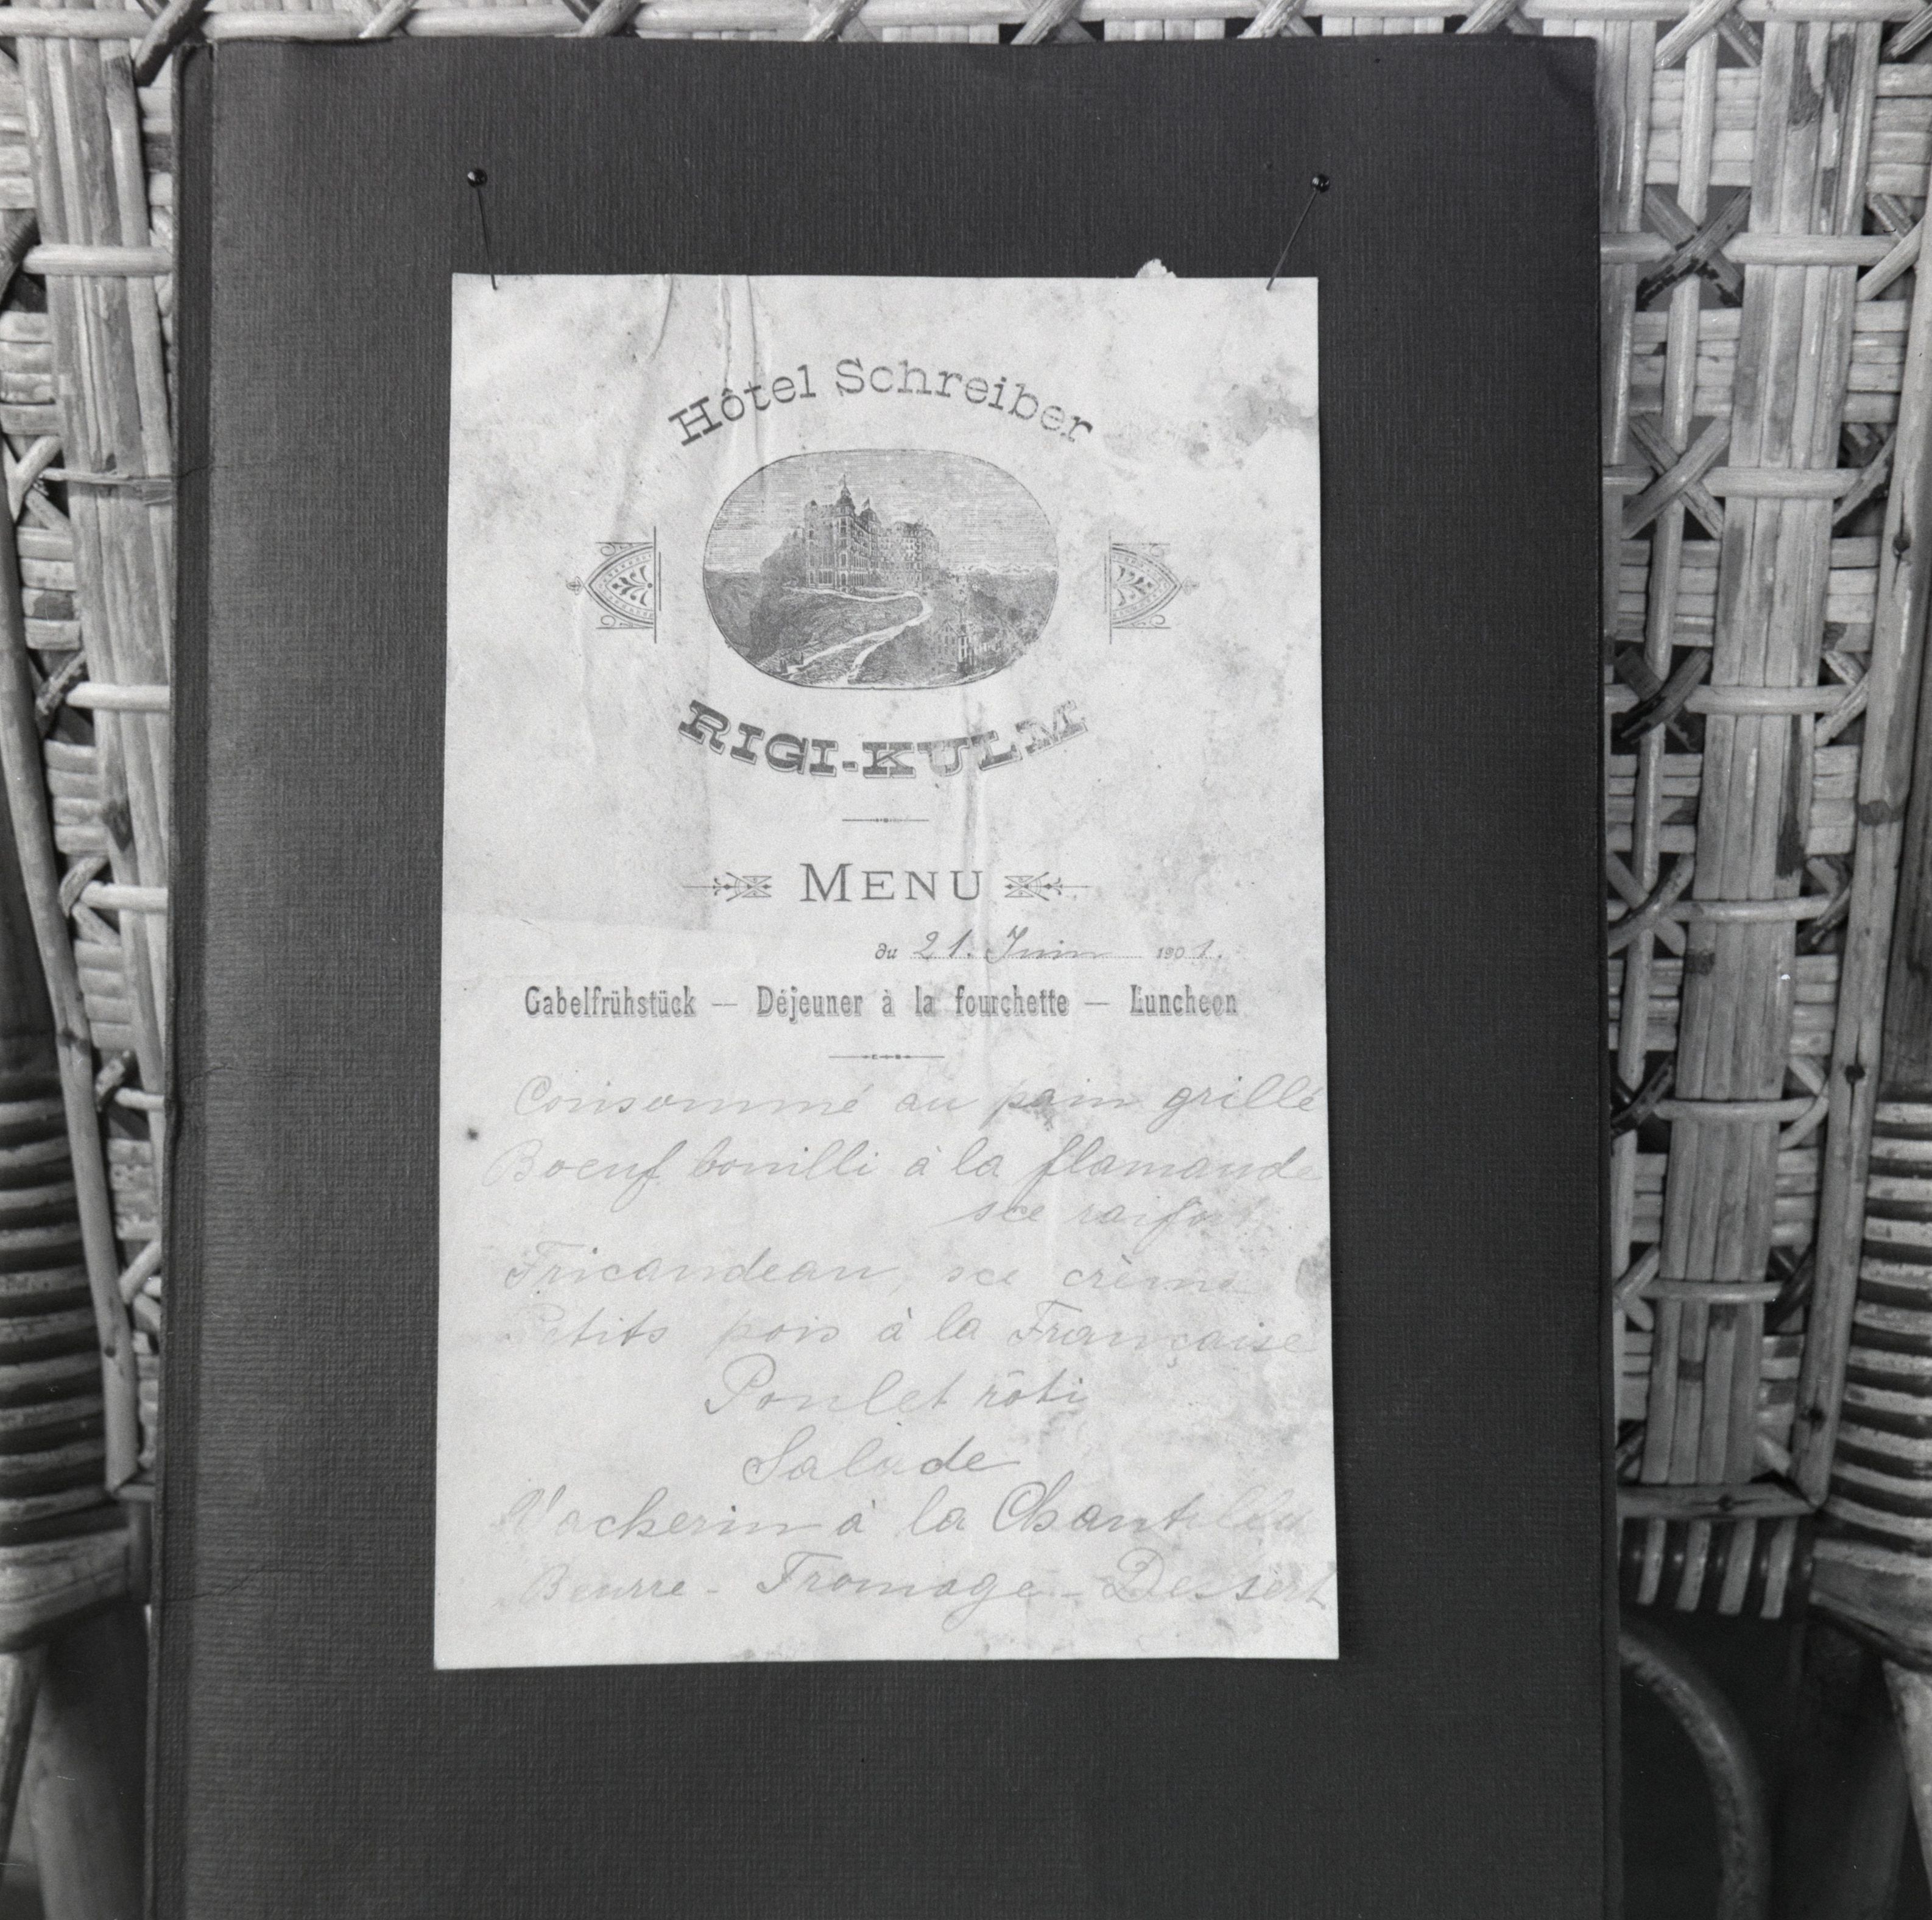 Hôtel Schreiber
RIGI-KULM
MENU
du 21. Juin 1901.
Gabelfrühstück — Déjeuner à la fourchette — Luncheon
Consommé au pain grillé
Boeuf bouilli à la flamande
sce raifort
Fricandeau, sce crème
Petits pois à la Française
Poulet rôti
Salade
Vacherin à la Chantilly
Beurre - Fromage - Dessert